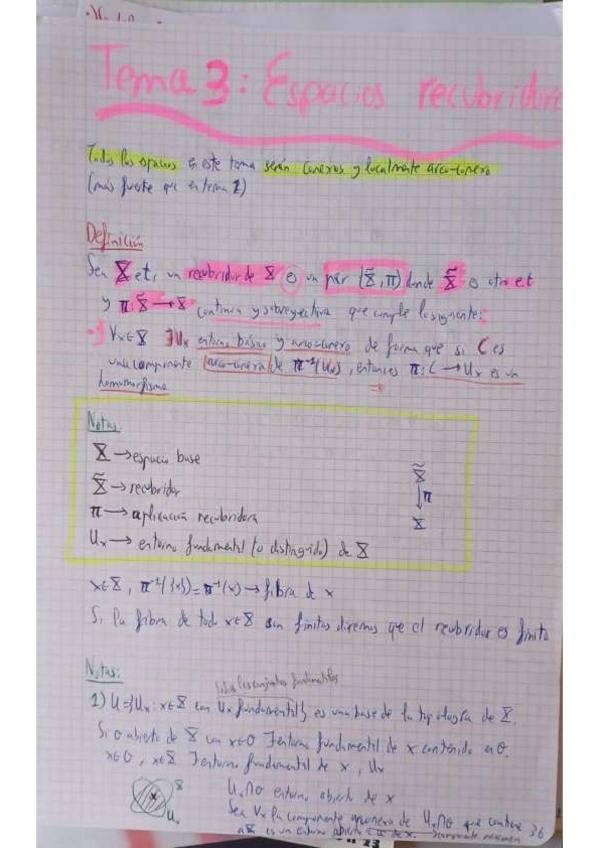 Tema 3: Espacios recubridore
Todos los espacios en este tema serán conexos y localmente arco-conexo
(más fuerte que en tema 2)
Definición
Sea X e.t, un recubridor de X es un par (X̃,π) donde X̃ es otro e.t
y π: X̃→X continua y sobreyectiva que cumple lo siguiente:
∀x∈X ∃Ux entorno básico y arco-conexo de forma que si C es
una componente arco-conexa de π⁻¹(Ux), entonces π: C→Ux es un
homeomorfismo
Notas
X → espacio base
X̃ → recubridor
π → aplicación recubridora
Ux → entorno fundamental (o distinguido) de X
X̃
↓π
X
x∈X, π⁻¹({x})=π⁻¹(x) → fibra de x
Si la fibra de todo x∈X son finitas diremos que el recubridor es finito
Notas:
los conjuntos fundamentales
1) U={Ux: x∈X con Ux fundamental} es una base de la topología de X.
Si O abierto de X con x∈O ∃entorno fundamental de x contenido en O.
x∈O, x∈X ∃entorno fundamental de x, Ux
Ux∩O entorno abierto de x
Sea Vx la componente arconexa de Ux∩O que contiene
36
x
X
Ux
es un entorno abierto de x.
23